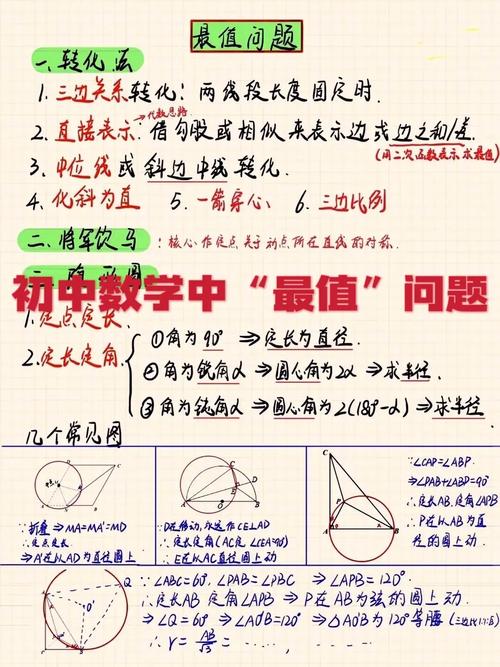 最值问题
一、转化法
1. 三边关系转化：两线段长度固定时.
→代数思路
2. 直接表示：借勾股或相似来表示边或边之和/差.
(用二次函数表示求最值)
3. 中位线或斜边中线转化.
4. 化斜为直 5. 一箭穿心 6. 三边比例
二、将军饮马：核心作定点关于动点所在直线的对称.
初中数学中“最值”问题
1. 定点定长.
2. 定长定角
①角为90° ⇒定长为直径.
②角为锐角α ⇒圆心角为2α ⇒求半径.
③角为钝角α ⇒圆心角为2(180°-α) ⇒求半径.
几个常见图
∵折叠 ⇒MA=MA'=MD
∴定点定长
⇒A'在以AD为直径圆上
∵D在移动,永远作CE⊥AD
∴定长定角(AC定 ∠EA=90°)
∴E在以AC直径圆上动
∵∠CAP=∠ABP
⇒∠PAB+∠ABP=90°
∴定长AB,定角∠APB
∴P在以AB为直
径的圆上动.
∵∠ABC=60°, ∠PAB=∠PBC ⇒∠APB=120°
∴定长AB 定角∠APB ⇒P在AB为弦的圆上动.
⇒∠Q=60° ⇒∠AO'B=120° ⇒△AO'B为120°等腰
∴r=AB/√3=......